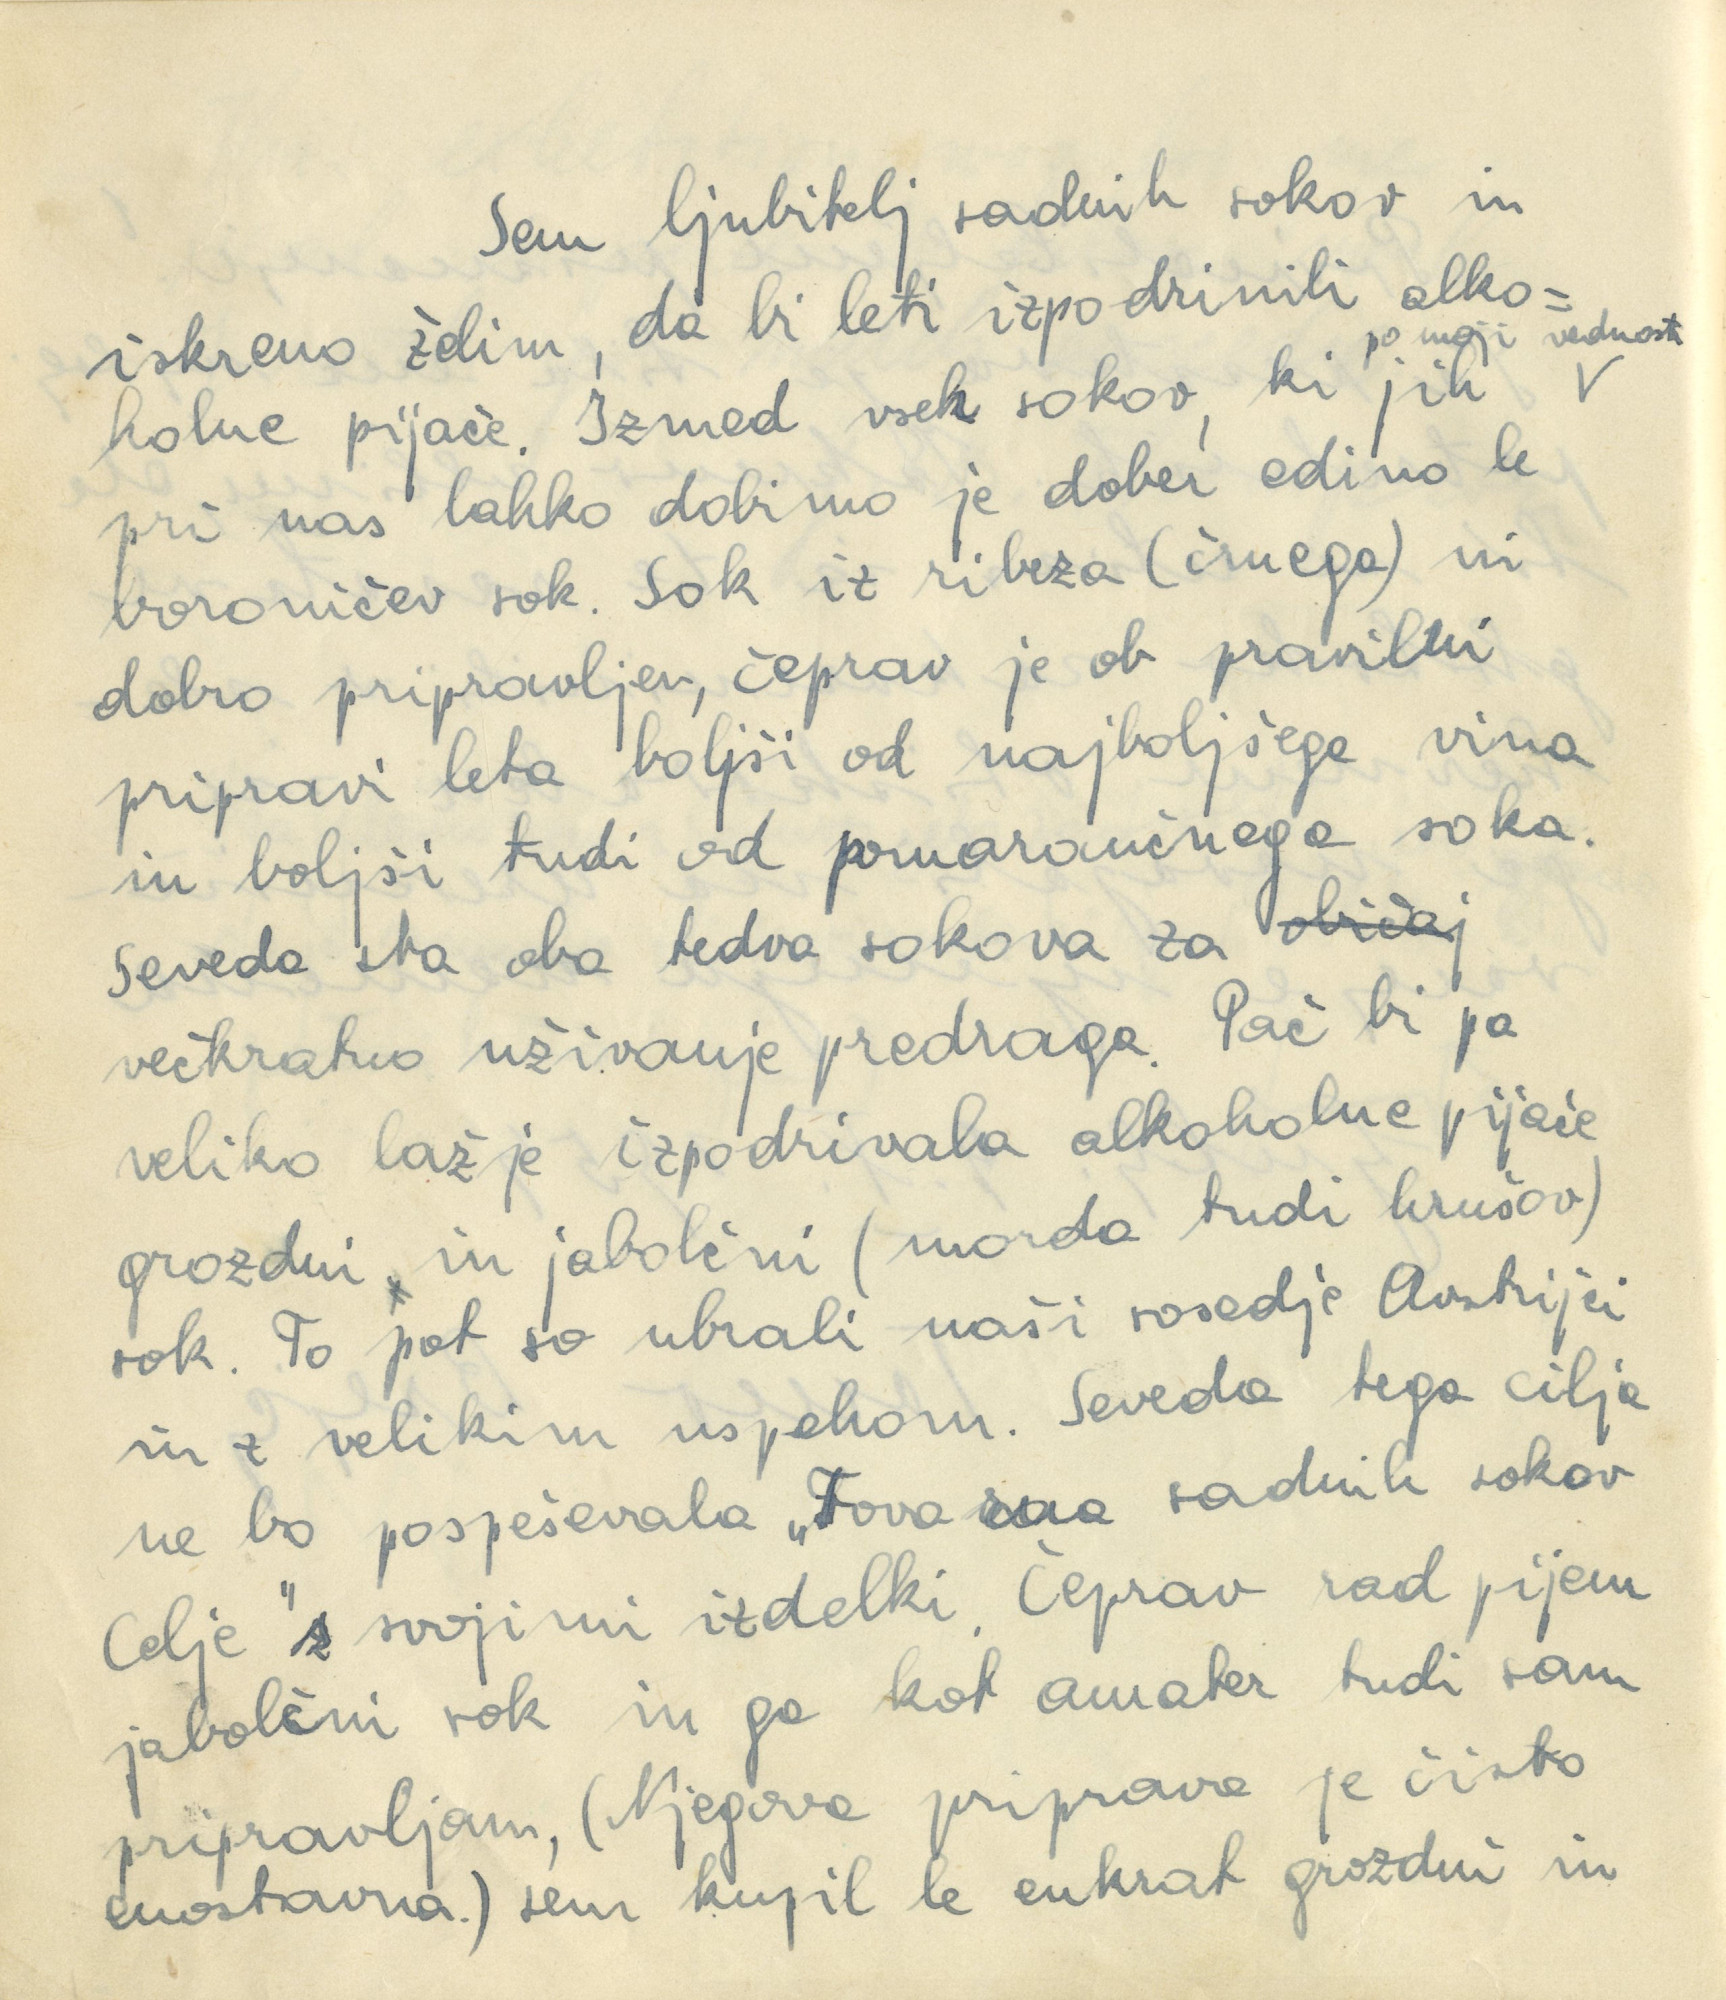 Sem ljubitelj sadnih sokov in
iskreno ždim, da bi leti izpodrinili alko=
po moji vednosti
holne pijače. Izmed vseh sokov, ki jih V
pri nas lahko dobimo je dober edino le
boroničev sok. Sok iz ribeza (črnega) ni
dobro pripravljen, čeprav je ob pravilni
pripravi leta boljši od najboljšega vina
in boljši tudi od pomarančnega soka.
Seveda sta oba tedva sokova za običaj
večkratno uživanje predraga. Pač bi pa
veliko lažje izpodrivala alkoholne pijače
grozdni in jabolčni (morda tudi hrušov)
sok. To pot so ubrali naši sosedje Avstrijci
in z velikim uspehom. Seveda tega cilja
ne bo pospeševala „Tovarna sadnih sokov
Celje" s svojimi izdelki. Čeprav rad pijem
jabolčni sok in ga kot amater tudi sam
pripravljam, (Njegova priprava je čisto
enostavna.) sem kupil le enkrat grozdni in